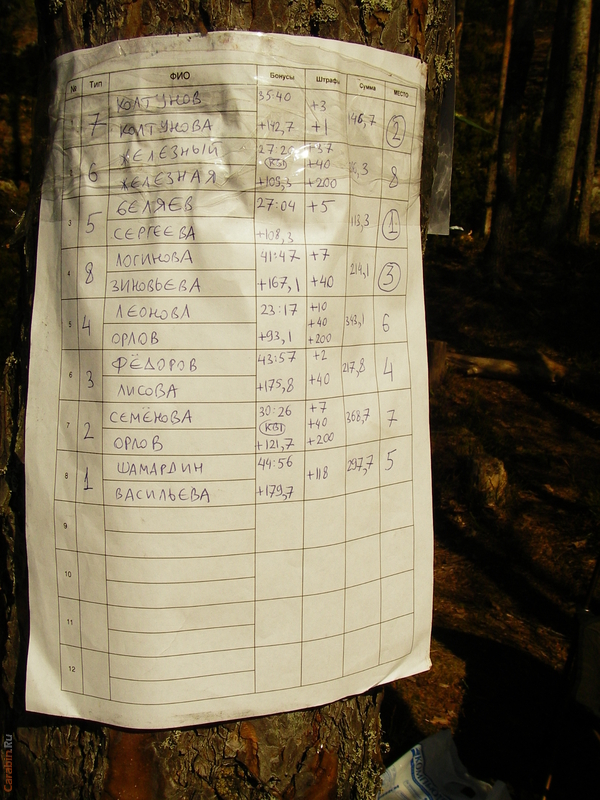 № Тип ФИО Бонусы Штрафы Сумма МЕСТО
1 7 КОЛТУНОВ 35:40 +3 146,7 2
КОЛТУНОВА +142,7 +1
6 ЖЕЛЕЗНЫЙ 27:26 +37 8
КВ1 +40
ЖЕЛЕЗНАЯ +109,3 +200
3 5 БЕЛЯЕВ 27:04 +5 113,3 1
СЕРГЕЕВА +108,3
4 8 ЛОГИНОВА 41:47 +7 214,1 3
ЗИНОВЬЕВА +167,1 +40
5 4 ЛЕОНОВА 23:17 +10 343,1 6
+40
ОРЛОВ +93,1 +200
6 3 ФЁДОРОВ 43:57 +2 217,8 4
ЛИСОВА +175,8 +40
7 2 СЕМЁНОВА 30:26 +7 368,7 7
КВ1 +40
ОРЛОВ +121,7 +200
8 1 ШАМАРДИН 44:56 +118 297,7 5
ВАСИЛЬЕВА +179,7
9
10
11
12
Carabin.Ru